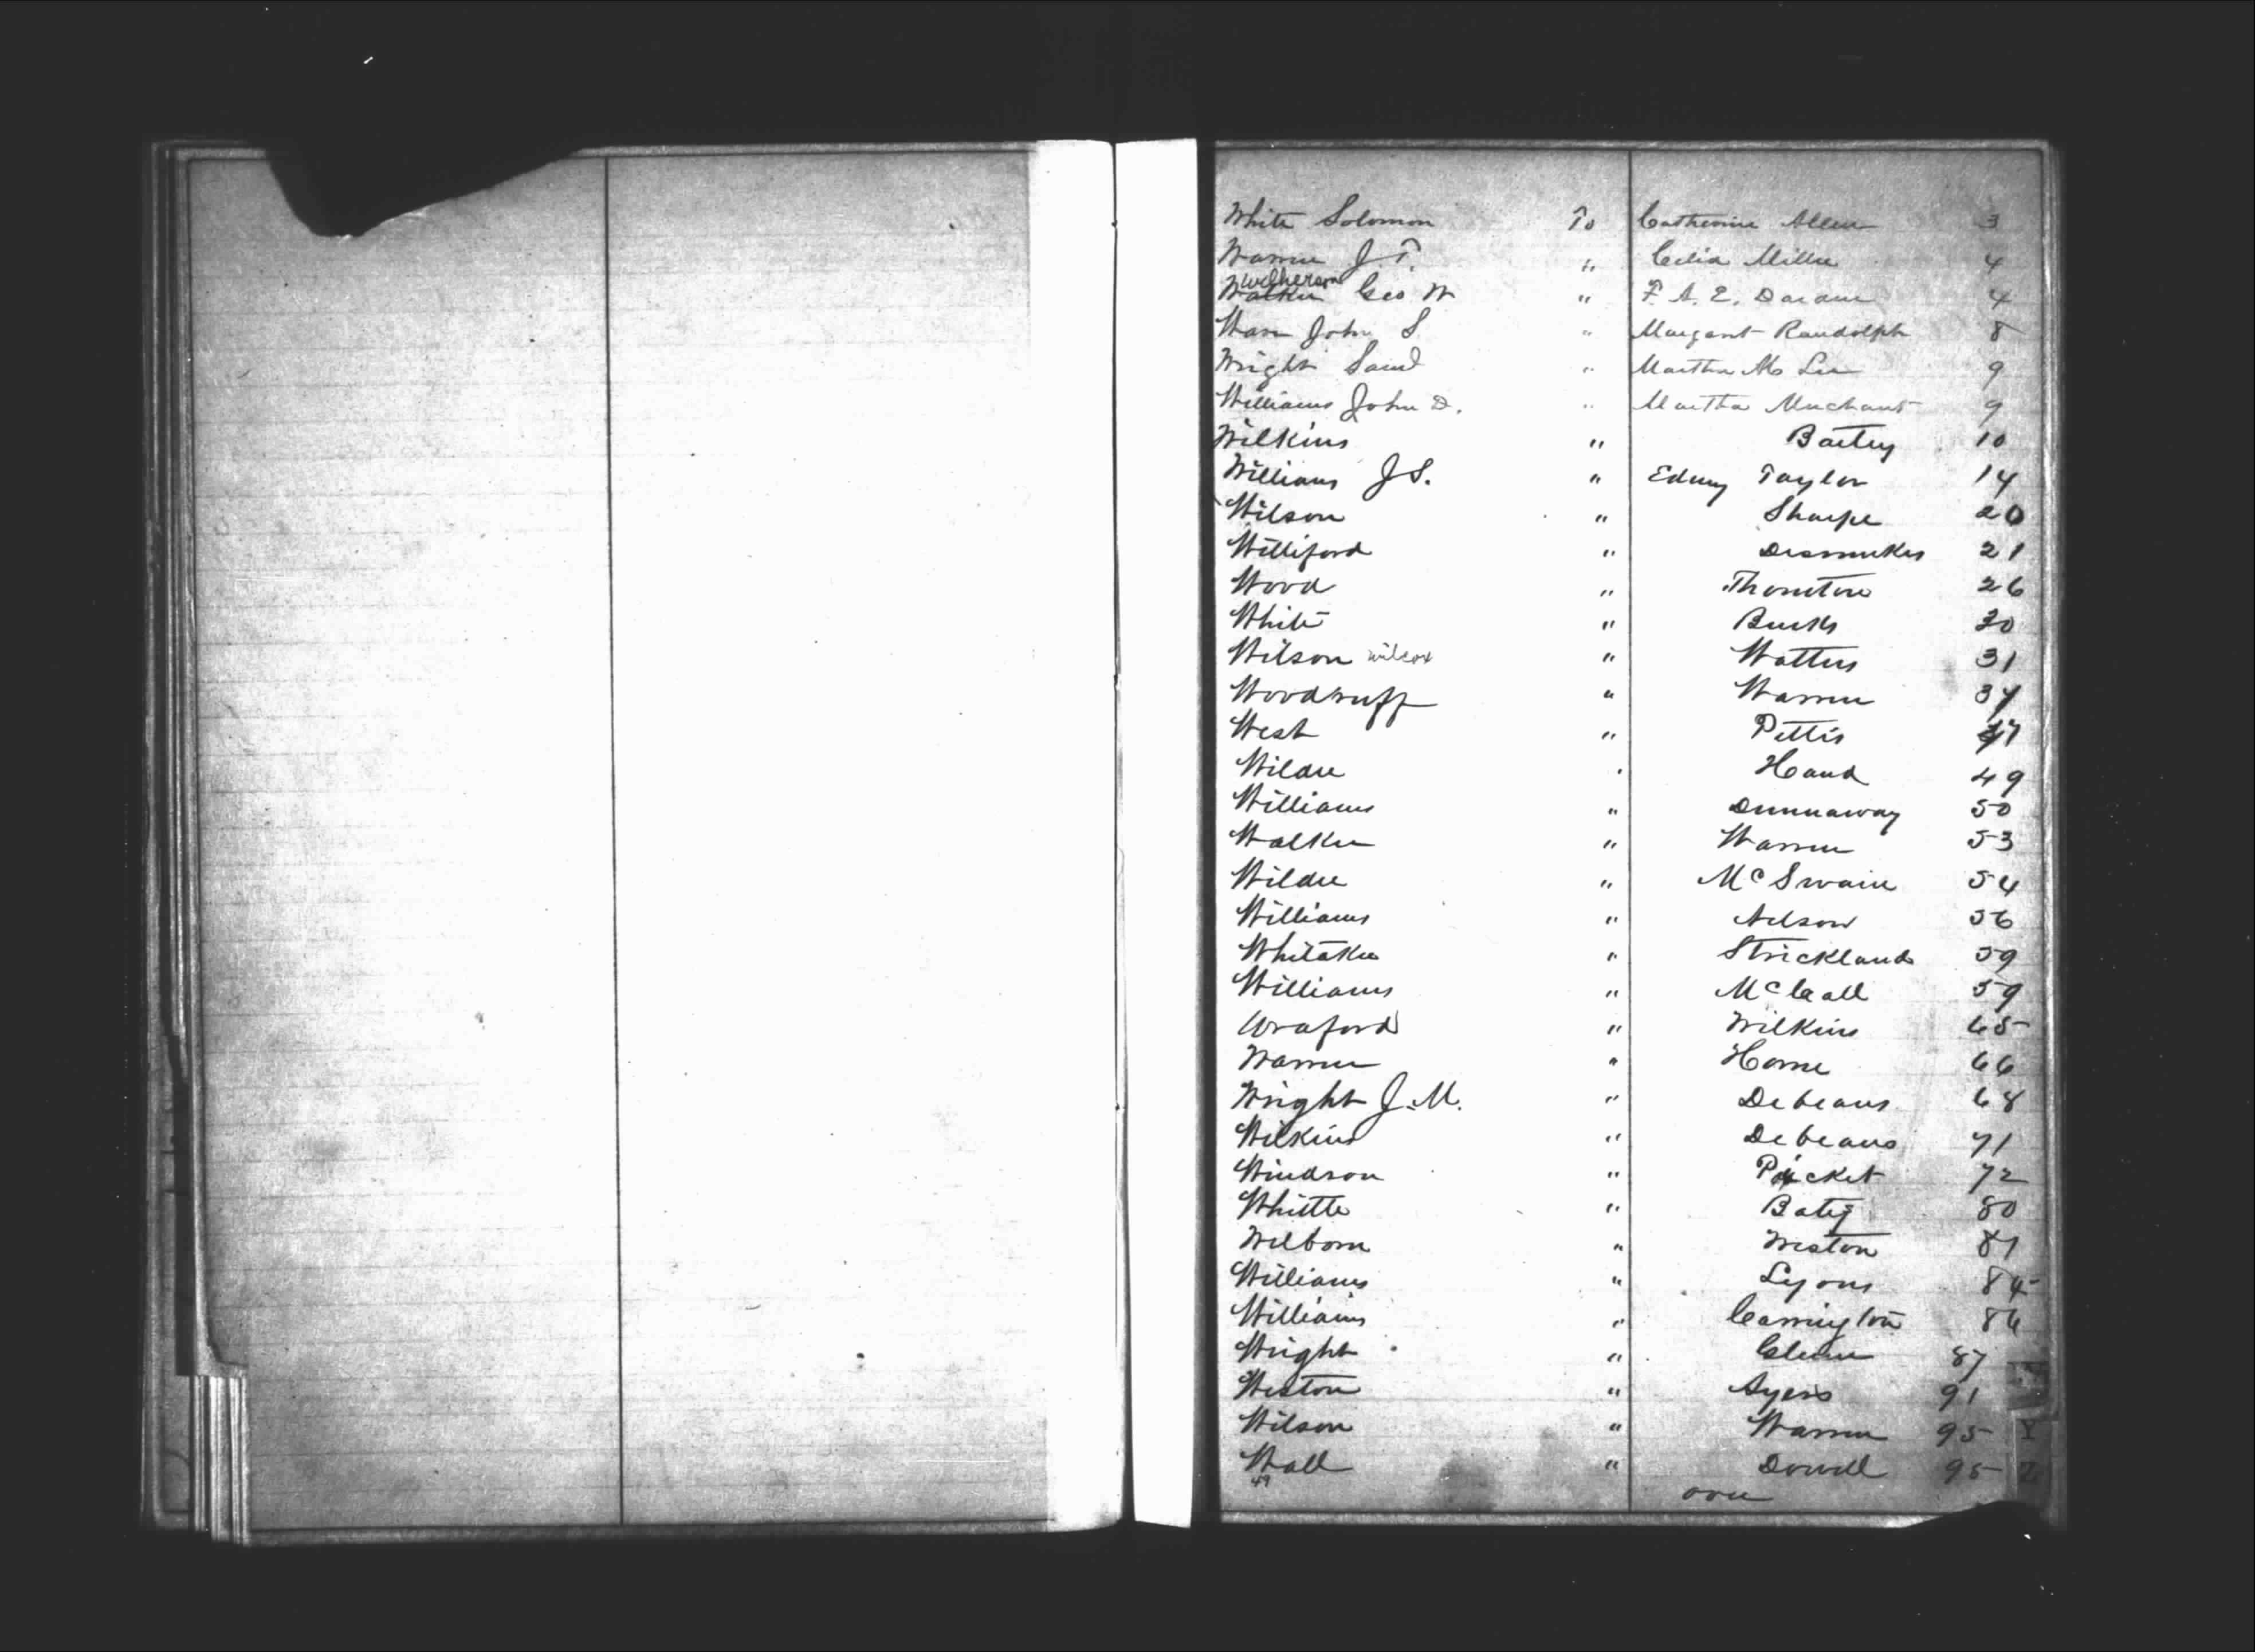 White Solomon To Catherine Allen 3
Warren J. T. " Celia Miller 4
Wilkerson
Walker Geo W " F. A. E. Daram 4
Ware John S. " Margaret Randolph 8
Wright Saml " Martha M Lee 9
Williams John D. " Martha Merchant 9
Wilkins " Bailey 10
Williams J S. " Edney Taylor 14
Wilson " Sharpe 20
Williford " Dismukes 21
Wood " Thornton 26
White " Burks 30
Wilson wilcox " Watters 31
Woodruff " Warren 34
West " Pettis 47
Wilder " Hand 49
Williams " Dunnaway 50
Walker " Warren 53
Wilder " McSwain 54
Williams " Nelson 56
Whitaker " Strickland 59
Williams " McCall 59
Wraford " Wilkins 65
Warren " Horne 66
Wright J. M. " Debeaus 68
Wilkins " Debeaus 71
Windson " Picket 72
Whittle " Batey 80
Wilborn " Weston 81
Williams " Lyons 84
Williams " Carrington 86
Wright " Glenn 87
Weston " Ayers 91
Wilson " Warren 95
Wall " Dowell 95
49
over